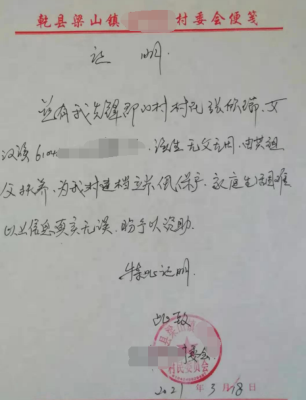 乾县梁山镇 村委会便笺
证明
兹有我 村村民张欣 女
汉族 610 ，该生无父无母，由其祖
父抚养，为我村建档立 低保户，家庭生活困难
以上信息真实无误，盼予以资助
特此证明
此致
村委会
村民委员会
2021年3月18日